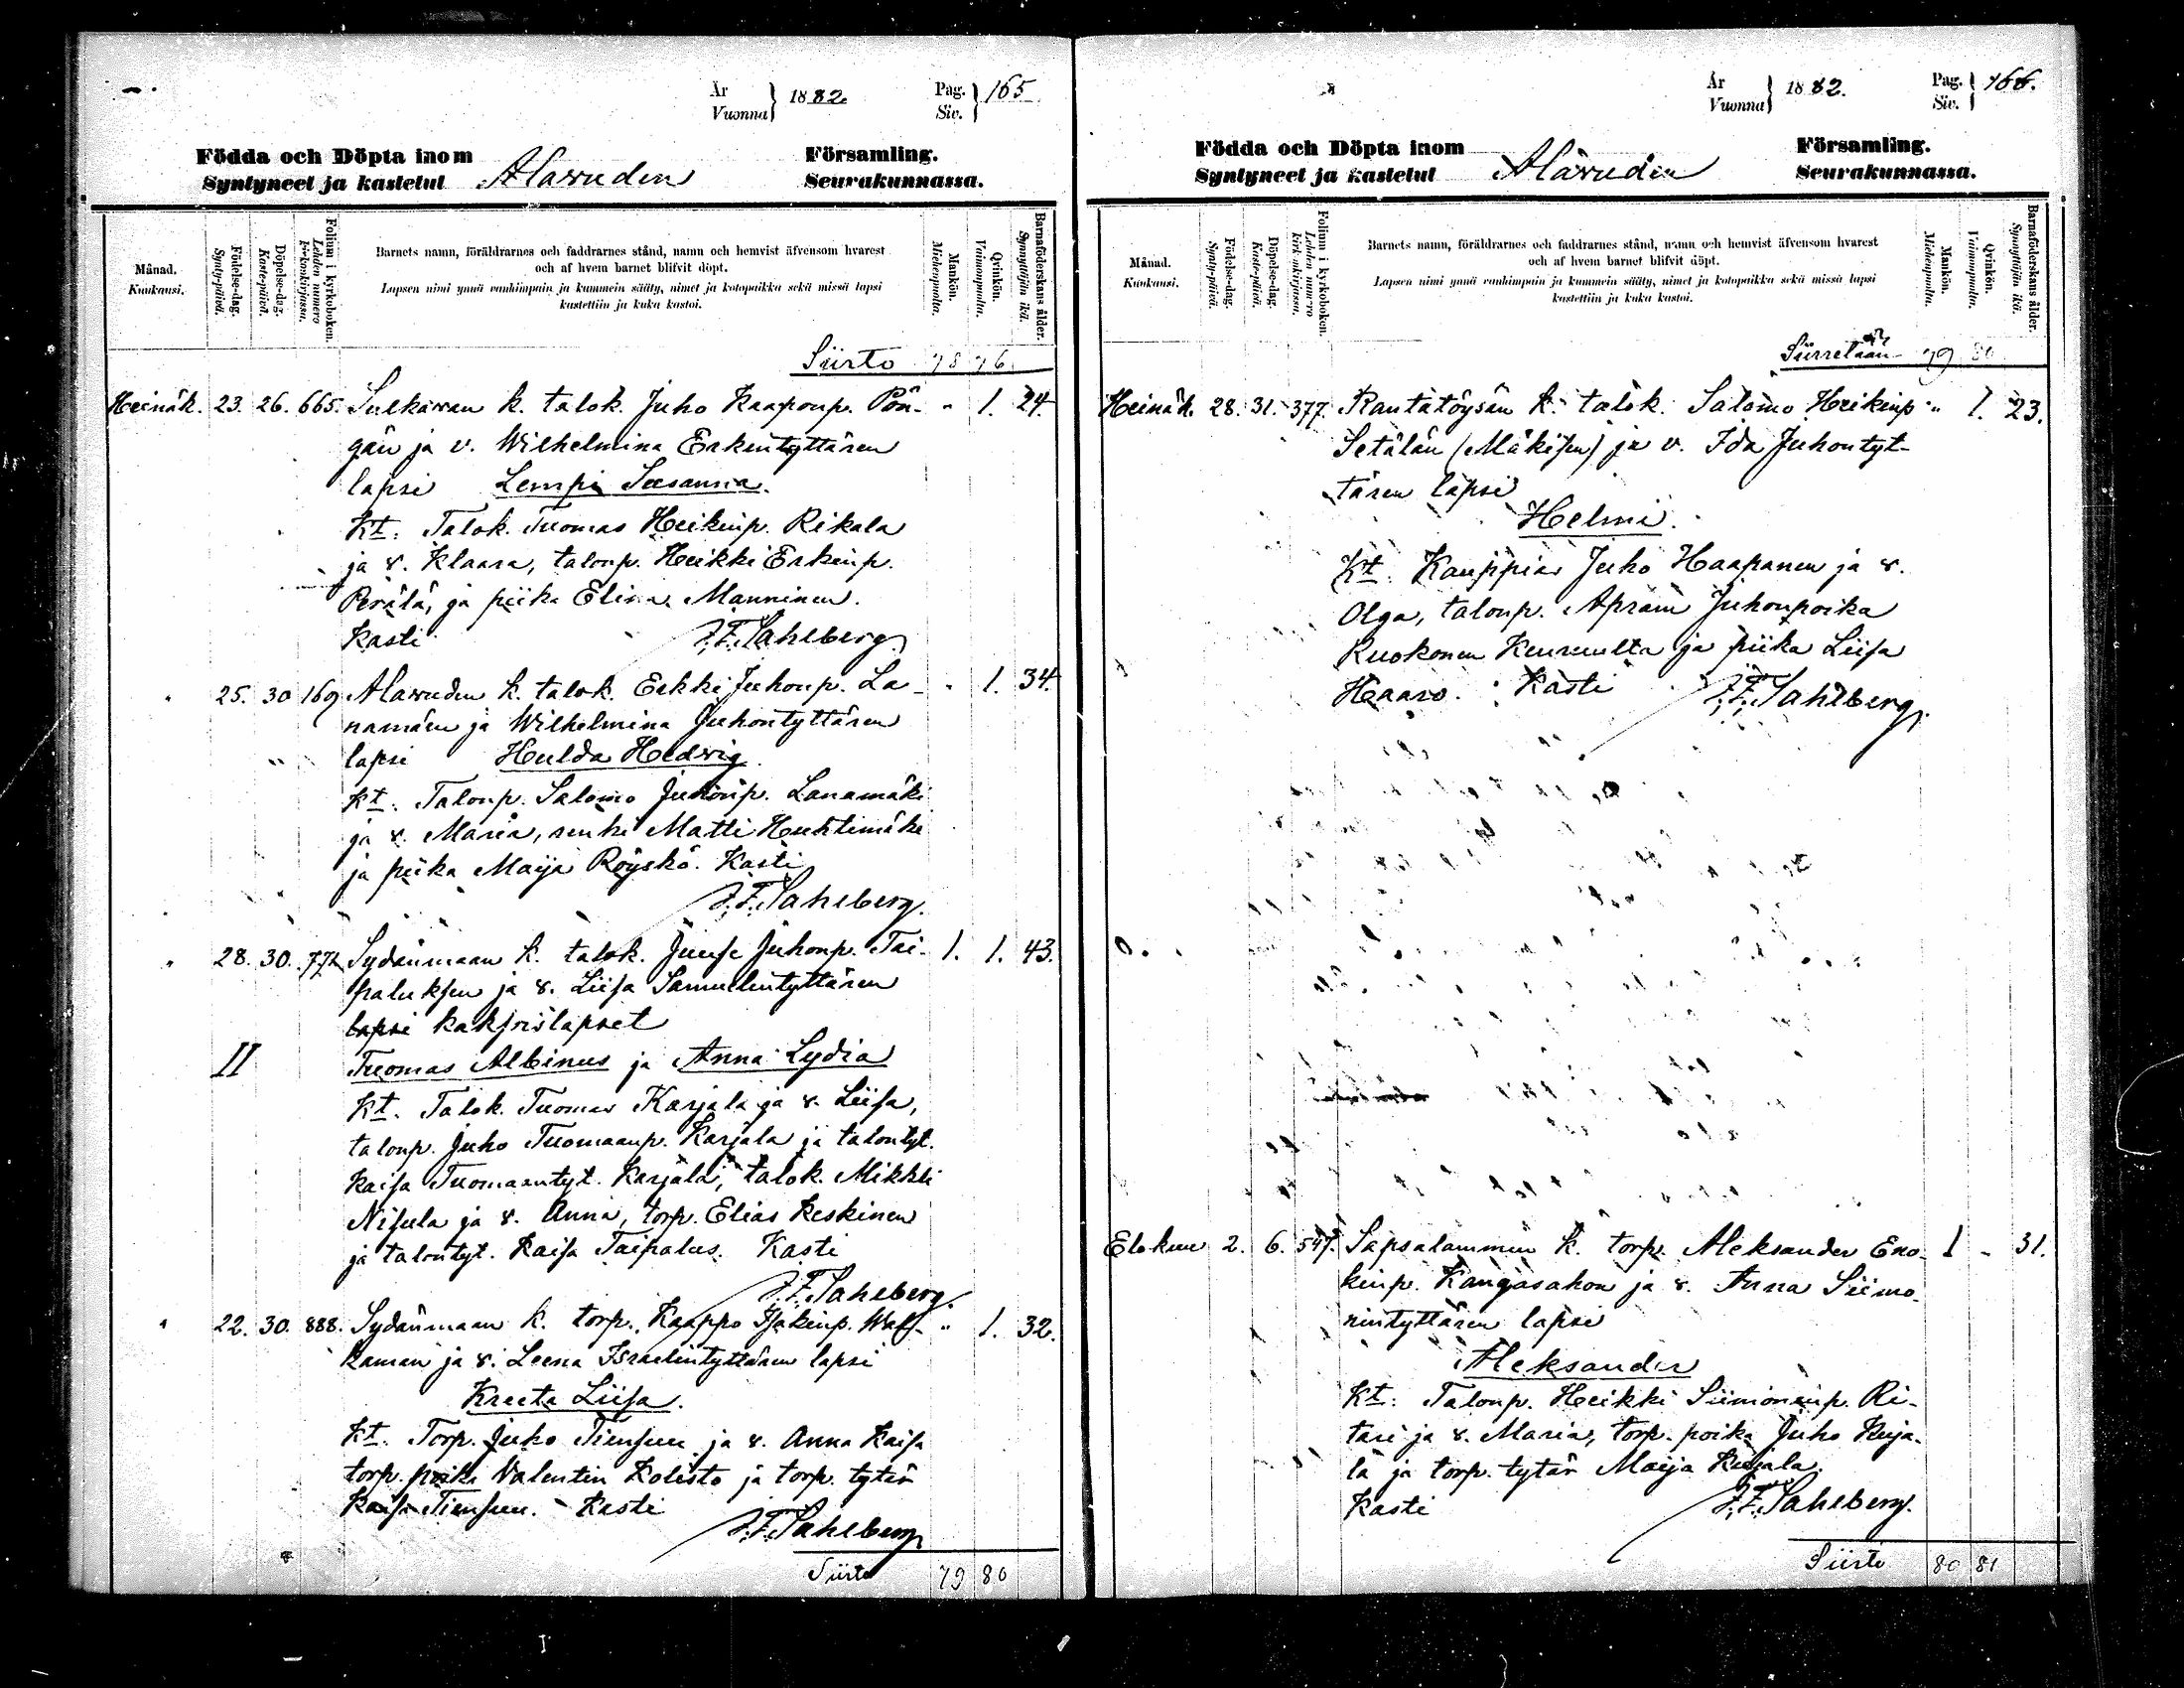 År
Vuonna } 1882.
Pag.
Siv. } 165
Födda och Döpta inom
Syntyneet ja kastetut Alavuden Församling.
Seurakunnassa.
Månad.
Kuukausi.
Födelse-dag.
Synty-päivä.
Döpelse-dag.
Kaste-päivä.
Folium i kyrkoboken.
Lehden numero
kirkonkirjassa.
Barnets namn, föräldrarnes och faddrarnes stånd, namn och hemvist äfvensom hvarest
och af hvem barnet blifvit döpt.
Lapsen nimi ynnä vanhimpain ja kummein sääty, nimet ja kotopaikka sekä missä lapsi
kastettiin ja kuka kastoi.
Mankön.
Miehenpuolta.
Qvinkön.
Vaimonpuolta.
Barnaföderskans ålder.
Synnyttäjän ikä.
Siirto 78 76
Heinäk. 23. 26. 665. Sulkavan k. talok. Juho Kaaponp. Pön- " 1. 24.
gän ja v. Wilhelmina Erkintyttären
lapsi Lempi Susanna.
Kt: Talok. Tuomas Heikinp. Rikala
ja v. Klaara, talonp. Heikki Erkinp.
Perälä, ja piika Elina Manninen.
Kasti J.F. Sahlberg.
" 25. 30 169 Alavuden k. talok. Erkki Juhonp. La- " 1. 34.
namäen ja Wilhelmina Juhontyttären
lapsi Hulda Hedvig.
Kt: Talonp. Salomo Juhonp. Lanamäki
ja v. Maria, renki Matti Huhtimäki
ja piika Maija Röyskö. Kasti
J.F. Sahlberg.
" 28. 30. 772 Sydänmaan k. talok. Juuse Juhonp. Tai- 1. 1. 43.
paluksen ja v. Liisa Samuelintyttären
lapsi kaksoislapset
II Tuomas Albinus ja Anna Lydia
Kt. Talok. Tuomas Karjala ja v. Liisa,
talonp. Juho Tuomaanp. Karjala ja talontyt.
Kaisa Tuomaantyt. Karjala, talok. Mikkeli
Nisula ja v. Anna, torp. Elias Keskinen
ja talontyt. Kaisa Taipalus. Kasti
J.F. Sahlberg.
" 22. 30. 888. Sydänmaan k. torp. Kaappo Isakinp. " 1. 32.
kaman ja v. Leena Israelintyttären lapsi
Kreeta Liisa.
Kt. Torp. Juho Tiensuu ja v. Anna Kaisa
torp. poika Valentin Kolisto ja torp. tytär
Kaisa Tiensuu. Kasti
J.F. Sahlberg
Siirto 79 80
År
Vuonna } 1882.
Pag.
Siv. } 166.
Födda och Döpta inom
Syntyneet ja kastetut Alavuden Församling.
Seurakunnassa.
Månad.
Kuukausi.
Födelse-dag.
Synty-päivä.
Döpelse-dag.
Kaste-päivä.
Folium i kyrkoboken.
Lehden numero
kirkonkirjassa.
Barnets namn, föräldrarnes och faddrarnes stånd, namn och hemvist äfvensom hvarest
och af hvem barnet blifvit döpt.
Lapsen nimi ynnä vanhimpain ja kummein sääty, nimet ja kotopaikka sekä missä lapsi
kastettiin ja kuka kastoi.
Mankön.
Miehenpuolta.
Qvinkön.
Vaimonpuolta.
Barnaföderskans ålder.
Synnyttäjän ikä.
Siirretään 79 80
Heinäk. 28. 31. 377 Rantatöysän k. talok. Salomo Heikinp. " 1. 23.
Setälän (Mäkisen) ja v. Ida Juhontyt-
tären lapsi
Helmi.
Kt: Kauppias Juho Haapanen ja v.
Olga, talonp. Apram Juhonpoika
Ruokonen Keuruulta ja piika Liisa
Haaro. Kasti J.F. Sahlberg.
Elokuu 2. 6. 547. Sapsalammin k. torp. Aleksander Eno- 1 - 31.
kinp. Kangasahon ja v. Anna Siimo-
nintyttären lapsi
Aleksander
Kt: Talonp. Heikki Siimoninp. Ri-
tari ja v. Maria, torp. poika Juho Kuja-
la ja torp. tytär Maija Kujala.
Kasti J.F. Sahlberg.
Siirto 80 81